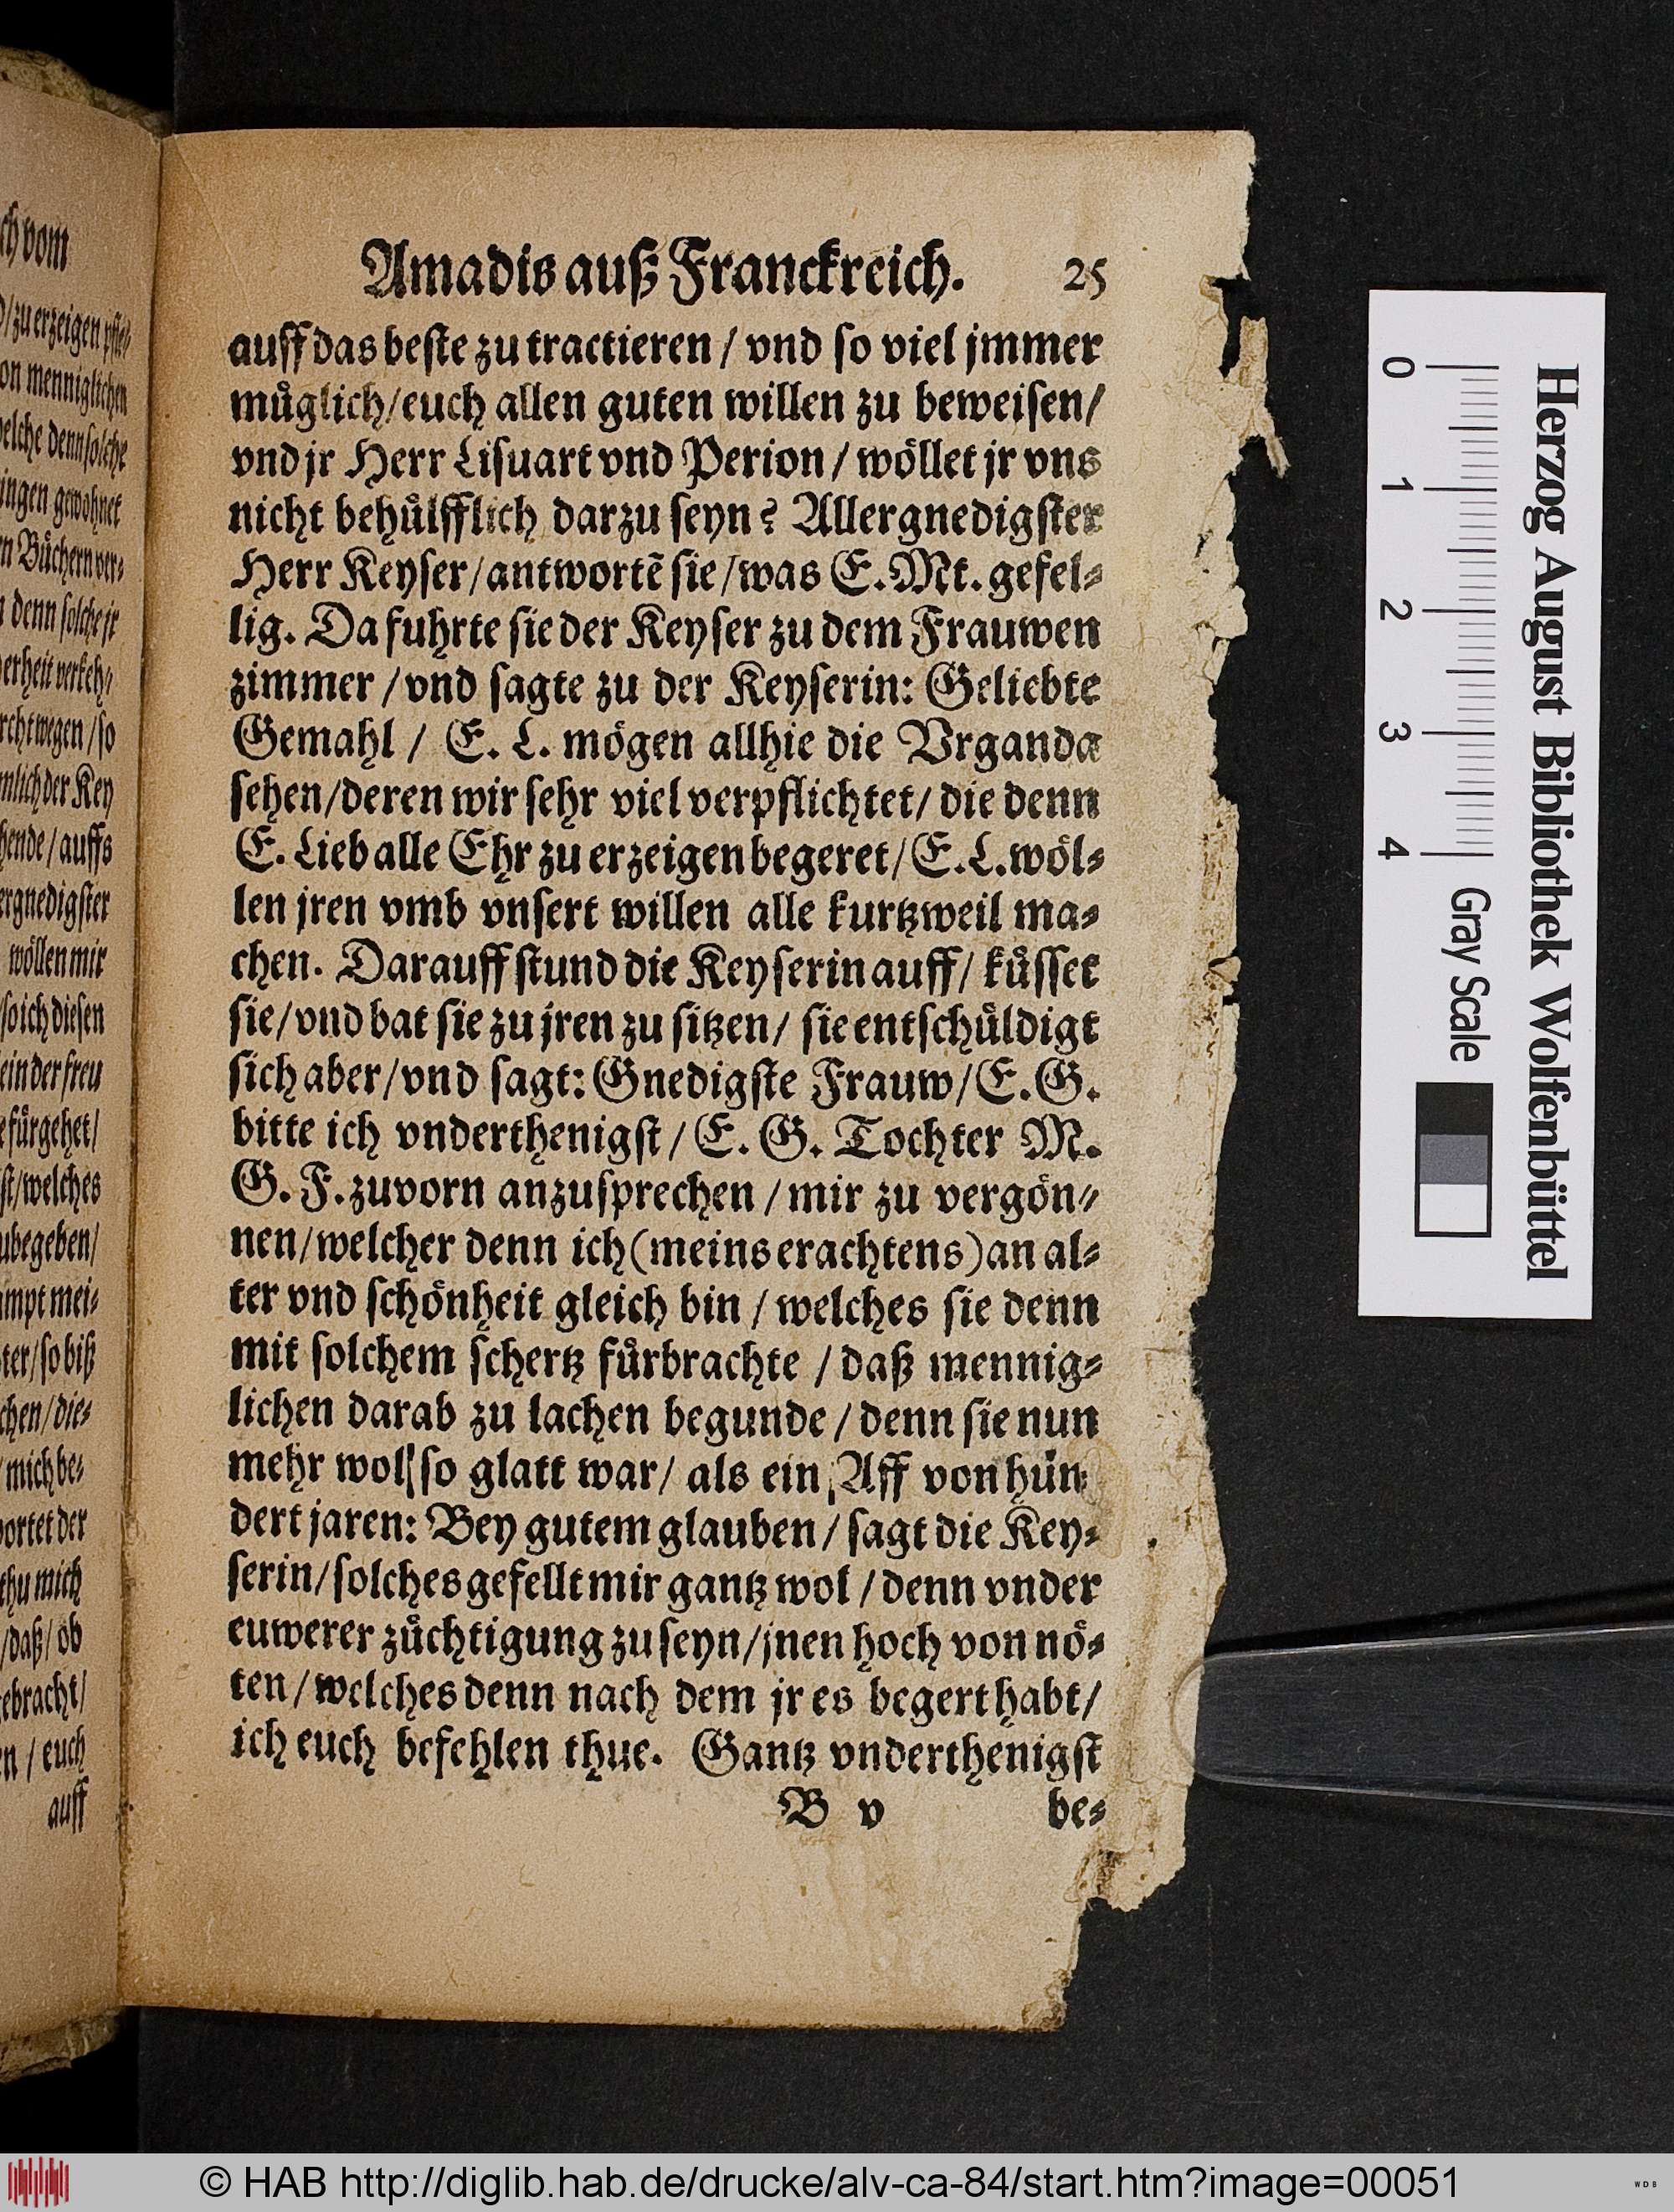 ch vom
/zu erzeigen pfle⸗
on menniglichen
welche denn solche
ingen gewohnet
n Bůchern ver⸗
denn solche jr
erheit verkeh⸗
rcht wegen / so
mlich der Key
hende / auffs
ergnedigster
wöllen mir
so ich diesen
ein der freu
fůrgehet /
st / welches
ubegeben /
impt mei⸗
ter / so biß
chen / die⸗
mich be⸗
ortet der
thu mich
/ daß / ob
ebracht /
n / euch
auff
Amadis auß Franckreich. 25
auff das beſte zu tractieren / vnd ſo viel jmmer
můglich / euch allen guten willen zu beweiſen /
vnd jr Herr Liſuart vnd Perion / wöllet jr vns
nicht behůlfflich darzu ſeyn? Allergnedigſter
Herr Keyſer / antwortẽ ſie / was E. Mt. gefel⸗
lig. Da fuhrte ſie der Keyſer zu dem Frauwen
zimmer / vnd ſagte zu der Keyſerin: Geliebte
Gemahl / E. L. mögen allhie die Vrganda
ſehen / deren wir ſehr viel verpflichtet / die denn
E. Lieb alle Ehr zu erzeigen begeret / E. L. wöl⸗
len jren vmb vnſert willen alle kurtzweil ma⸗
chen. Darauff ſtund die Keyſerin auff / kůſſet
ſie / vnd bat ſie zu jren zu ſitzen / ſie entſchůldigt
ſich aber / vnd ſagt: Gnedigſte Frauw / E. G.
bitte ich vnderthenigſt / E. G. Tochter M.
G. F. zuvorn anzuſprechen / mir zu vergön⸗
nen / welcher denn ich (meins erachtens) an al⸗
ter vnd ſchönheit gleich bin / welches ſie denn
mit ſolchem ſchertz fůrbrachte / daß mennig⸗
lichen darab zu lachen begunde / denn ſie nun
mehr wol ſo glatt war / als ein Aff von hůn
dert jaren: Bey gutem glauben / ſagt die Key⸗
ſerin / ſolches gefellt mir gantz wol / denn vnder
euwerer zůchtigung zu ſeyn / jnen hoch von nö⸗
ten / welches denn nach dem jr es begert habt /
ich euch befehlen thue. Gantz vnderthenigſt
B v be⸗
Herzog August Bibliothek Wolfenbüttel
0 1 2 3 4 Gray Scale
© HAB http://diglib.hab.de/drucke/alv-ca-84/start.htm?image=00051
WDB